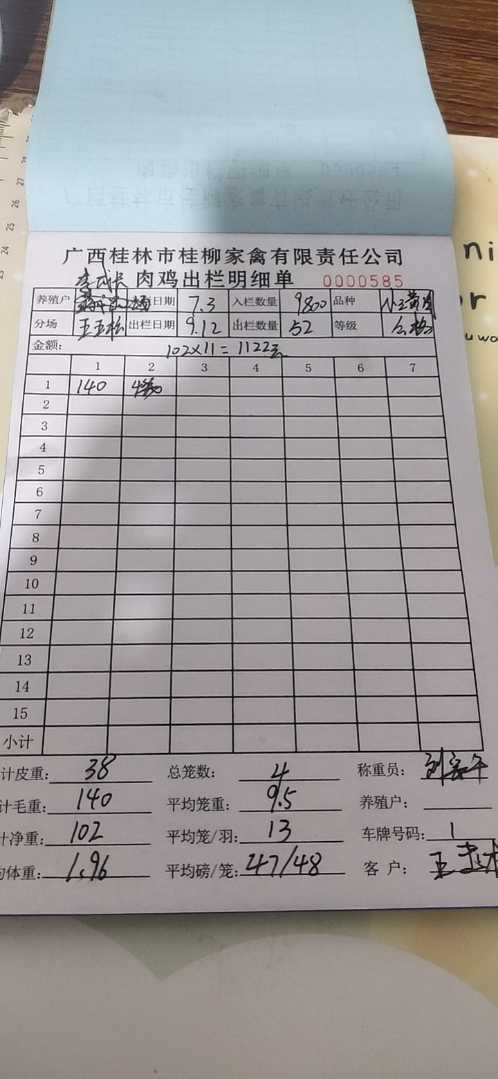 广西桂林市桂柳家禽有限责任公司
肉鸡出栏明细单 0000585
养殖户 日期 7.3 入栏数量 9800 品种
分场 出栏日期 9.12 出栏数量 52 等级
金额: 102×11=1122元
1 2 3 4 5 6 7
1 140
2
3
4
5
6
7
8
9
10
11
12
13
14
15
小计
计皮重: 38 总笼数: 4 称重员:
计毛重: 140 平均笼重: 9.5 养殖户:
计净重: 102 平均笼/羽: 13 车牌号码: 1
均体重: 1.96 平均磅/笼: 47/48 客户: